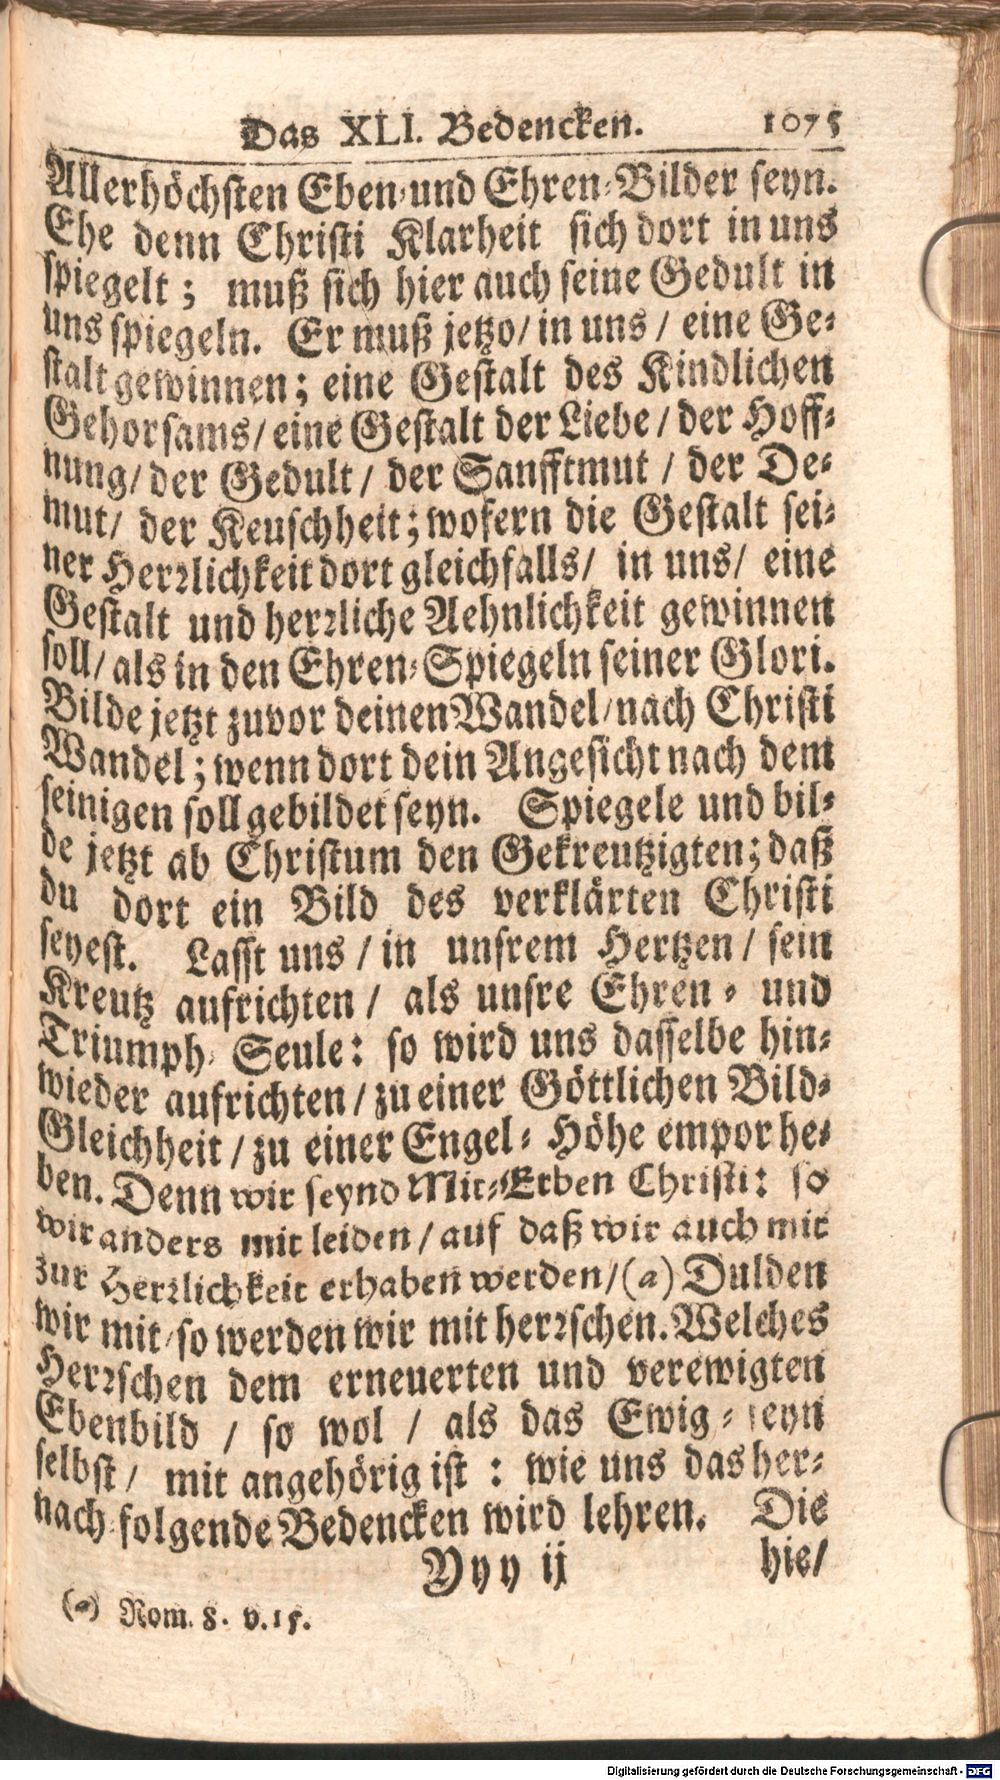 Das XLI. Bedencken. 1075
Allerhöchsten Eben-und Ehren-Bilder seyn.
Ehe denn Christi Klarheit sich dort in uns
spiegelt; muß sich hier auch seine Gedult in
uns spiegeln. Er muß jetzo/ in uns / eine Ge-
stalt gewinnen; eine Gestalt des Kindlichen
Gehorsams/ eine Gestalt der Liebe / der Hoff-
nung/ der Gedult / der Sanfftmut / der De-
mut/ der Keuschheit; wofern die Gestalt sei-
ner Herrlichkeit dort gleichfalls/ in uns/ eine
Gestalt und herrliche Aehnlichkeit gewinnen
soll/ als in den Ehren-Spiegeln seiner Glori.
Bilde jetzt zuvor deinen Wandel/nach Christi
Wandel; wenn dort dein Angesicht nach dem
seinigen soll gebildet seyn. Spiegele und bil-
de jetzt ab Christum den Gekreutzigten; daß
du dort ein Bild des verklärten Christi
seyest. Lasst uns / in unsrem Hertzen / sein
Kreutz aufrichten / als unsre Ehren- und
Triumph-Seule: so wird uns dasselbe hin-
wieder aufrichten / zu einer Göttlichen Bild-
Gleichheit / zu einer Engel-Höhe empor he-
ben. Denn wir seynd Mit-Erben Christi: so
wir anders mit leiden / auf daß wir auch mit
zur Herrlichkeit erhaben werden/ (a) Dulden
wir mit/so werden wir mit herrschen. Welches
Herrschen dem erneuerten und verewigten
Ebenbild / so wol / als das Ewig-seyn
selbst/ mit angehörig ist : wie uns das her-
nach-folgende Bedencken wird lehren. Die
Yyy ij hie/
(a) Rom. 8. v. 15.
Digitalisierung gefördert durch die Deutsche Forschungsgemeinschaft - DFG